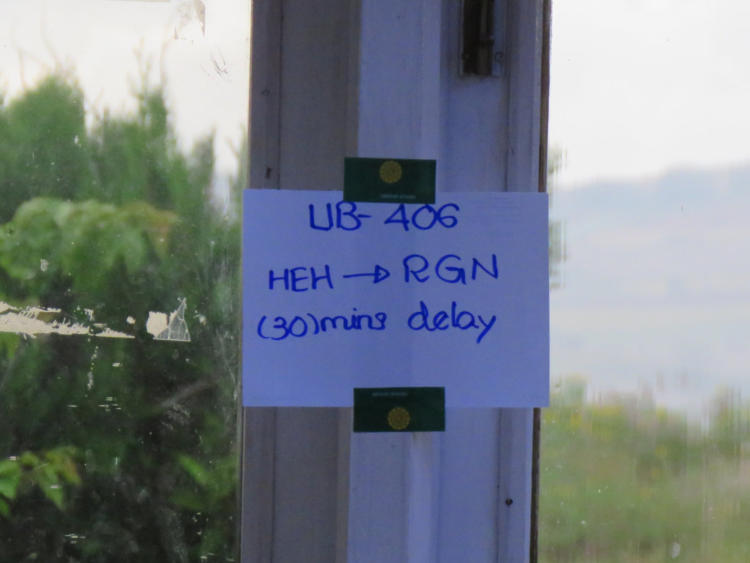 UB-406
HEH → RGN
(30)mins delay